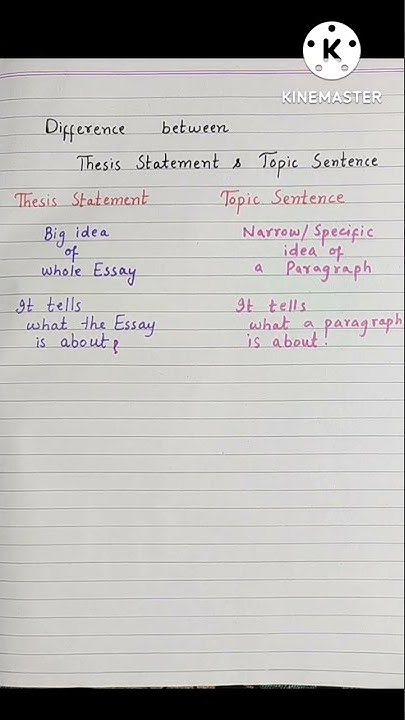 K
KINEMASTER
Difference between
Thesis Statement & Topic Sentence
Thesis Statement
Big idea
of
whole Essay
It tells
what the Essay
is about
Topic Sentence
Narrow/Specific
idea of
a Paragraph
It tells
what a paragraph
is about.